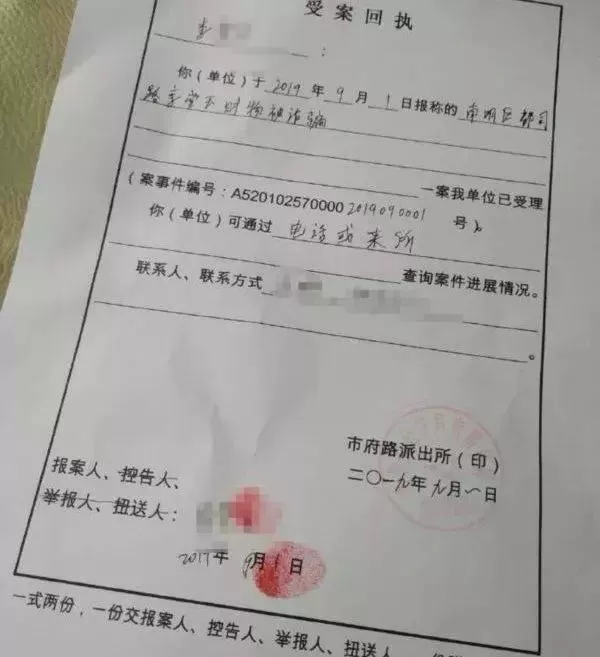 受案回执
李 :
你（单位）于 2019 年 9 月 1 日报称的 南明区都司
路 财物被诈骗
一案我单位已受理
（案事件编号：A5201025700002019090001 号）。
你（单位）可通过 电话或来所
查询案件进展情况。
联系人、联系方式 。
市府路派出所（印）
二〇一九年九月一日
报案人、控告人、
举报人、扭送人：
2019年 9月1日
一式两份，一份交报案人、控告人、举报人、扭送人